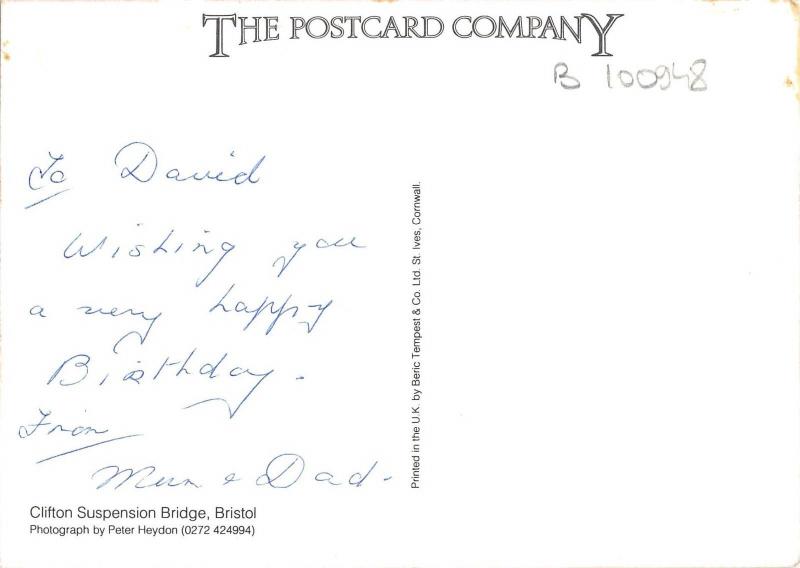 THE POSTCARD COMPANY
B 100948
To David
Wishing you
a very happy
Birthday.
From
Mum & Dad.
Printed in the U.K. by Beric Tempest & Co. Ltd. St. Ives, Cornwall.
Clifton Suspension Bridge, Bristol
Photograph by Peter Heydon (0272 424994)